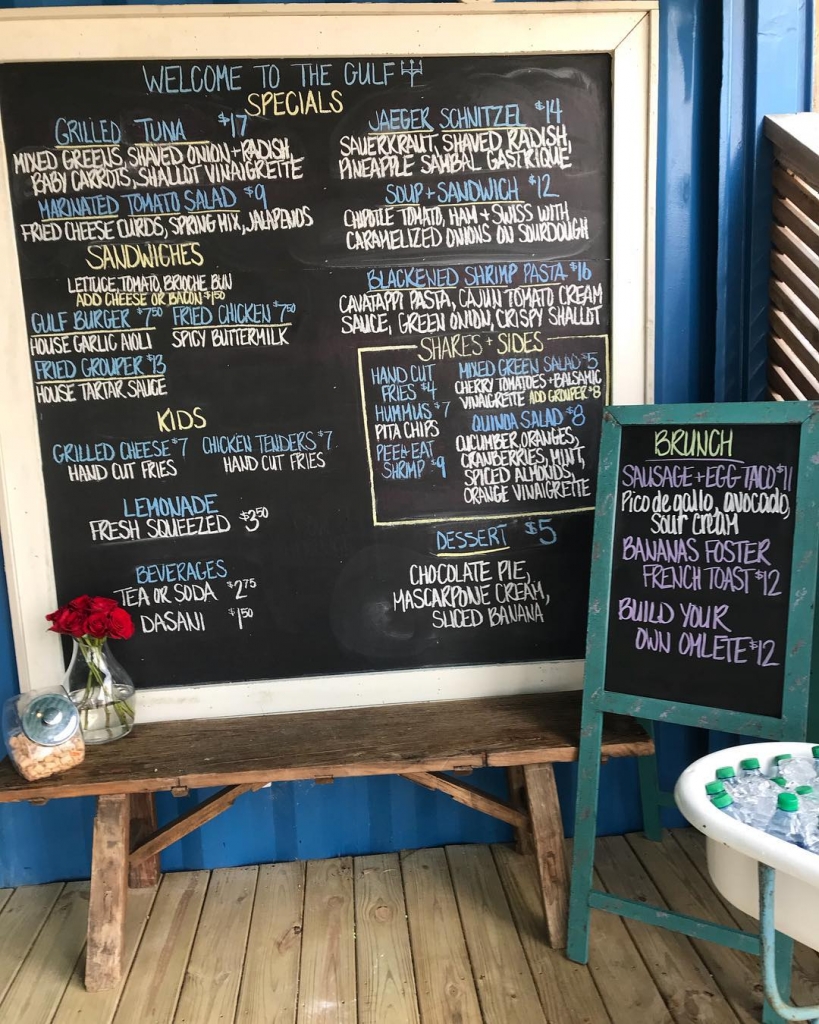 WELCOME TO THE GULF
SPECIALS
GRILLED TUNA $17
MIXED GREENS, SHAVED ONION + RADISH,
BABY CARROTS, SHALLOT VINAIGRETTE
MARINATED TOMATO SALAD $9
FRIED CHEESE CURDS, SPRING MIX, JALAPENOS
JAEGER SCHNITZEL $14
SAUERKRAUT, SHAVED RADISH,
PINEAPPLE SAMBAL GASTRIQUE
SOUP + SANDWICH $12
CHIPOTLE TOMATO, HAM + SWISS WITH
CARAMELIZED ONIONS ON SOURDOUGH
BLACKENED SHRIMP PASTA $16
CAVATAPPI PASTA, CAJUN TOMATO CREAM
SAUCE, GREEN ONION, CRISPY SHALLOT
SANDWICHES
LETTUCE, TOMATO, BRIOCHE BUN
ADD CHEESE OR BACON $1.50
GULF BURGER $7.50
HOUSE GARLIC AIOLI
FRIED CHICKEN $7.50
SPICY BUTTERMILK
FRIED GROUPER $13
HOUSE TARTAR SAUCE
KIDS
GRILLED CHEESE $7
HAND CUT FRIES
CHICKEN TENDERS $7
HAND CUT FRIES
LEMONADE
FRESH SQUEEZED $3.50
BEVERAGES
TEA OR SODA $2.75
DASANI $1.50
SHARES + SIDES
HAND CUT
FRIES $4
HUMMUS $7
PITA CHIPS
PEEL + EAT
SHRIMP $9
MIXED GREEN SALAD $5
CHERRY TOMATOES + BALSAMIC
VINAIGRETTE ADD GROUPER $8
QUINOA SALAD $8
CUCUMBER, ORANGES,
CRANBERRIES, MINT,
SPICED ALMONDS,
ORANGE VINAIGRETTE
DESSERT $5
CHOCOLATE PIE,
MASCARPONE CREAM,
SLICED BANANA
BRUNCH
SAUSAGE + EGG TACO $11
Pico de gallo, avocado,
sour cream
BANANAS FOSTER
FRENCH TOAST $12
BUILD YOUR
OWN OMLETE $12